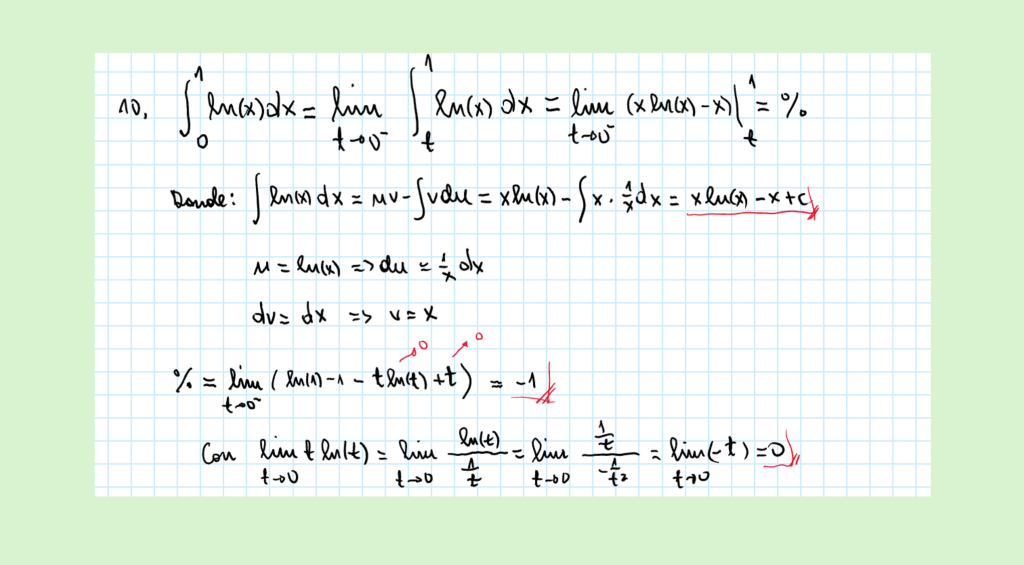 10, ∫₀¹ ln(x)dx = lim_{t→0⁻} ∫ₜ¹ ln(x) dx = lim_{t→0⁻} (x ln(x) - x)|ₜ¹ = %
Donde: ∫ ln(x) dx = uv - ∫vdu = x ln(x) - ∫x · 1/x dx = x ln(x) - x + c
u = ln(x) => du = 1/x dx
dv = dx => v = x
% = lim_{t→0⁻} ( ln(1) - 1 - t ln(t) →0 + t →0 ) = -1
Con lim_{t→0} t ln(t) = lim_{t→0} ln(t)/(1/t) = lim_{t→0} (1/t)/(-1/t²) = lim_{t→0} (-t) = 0